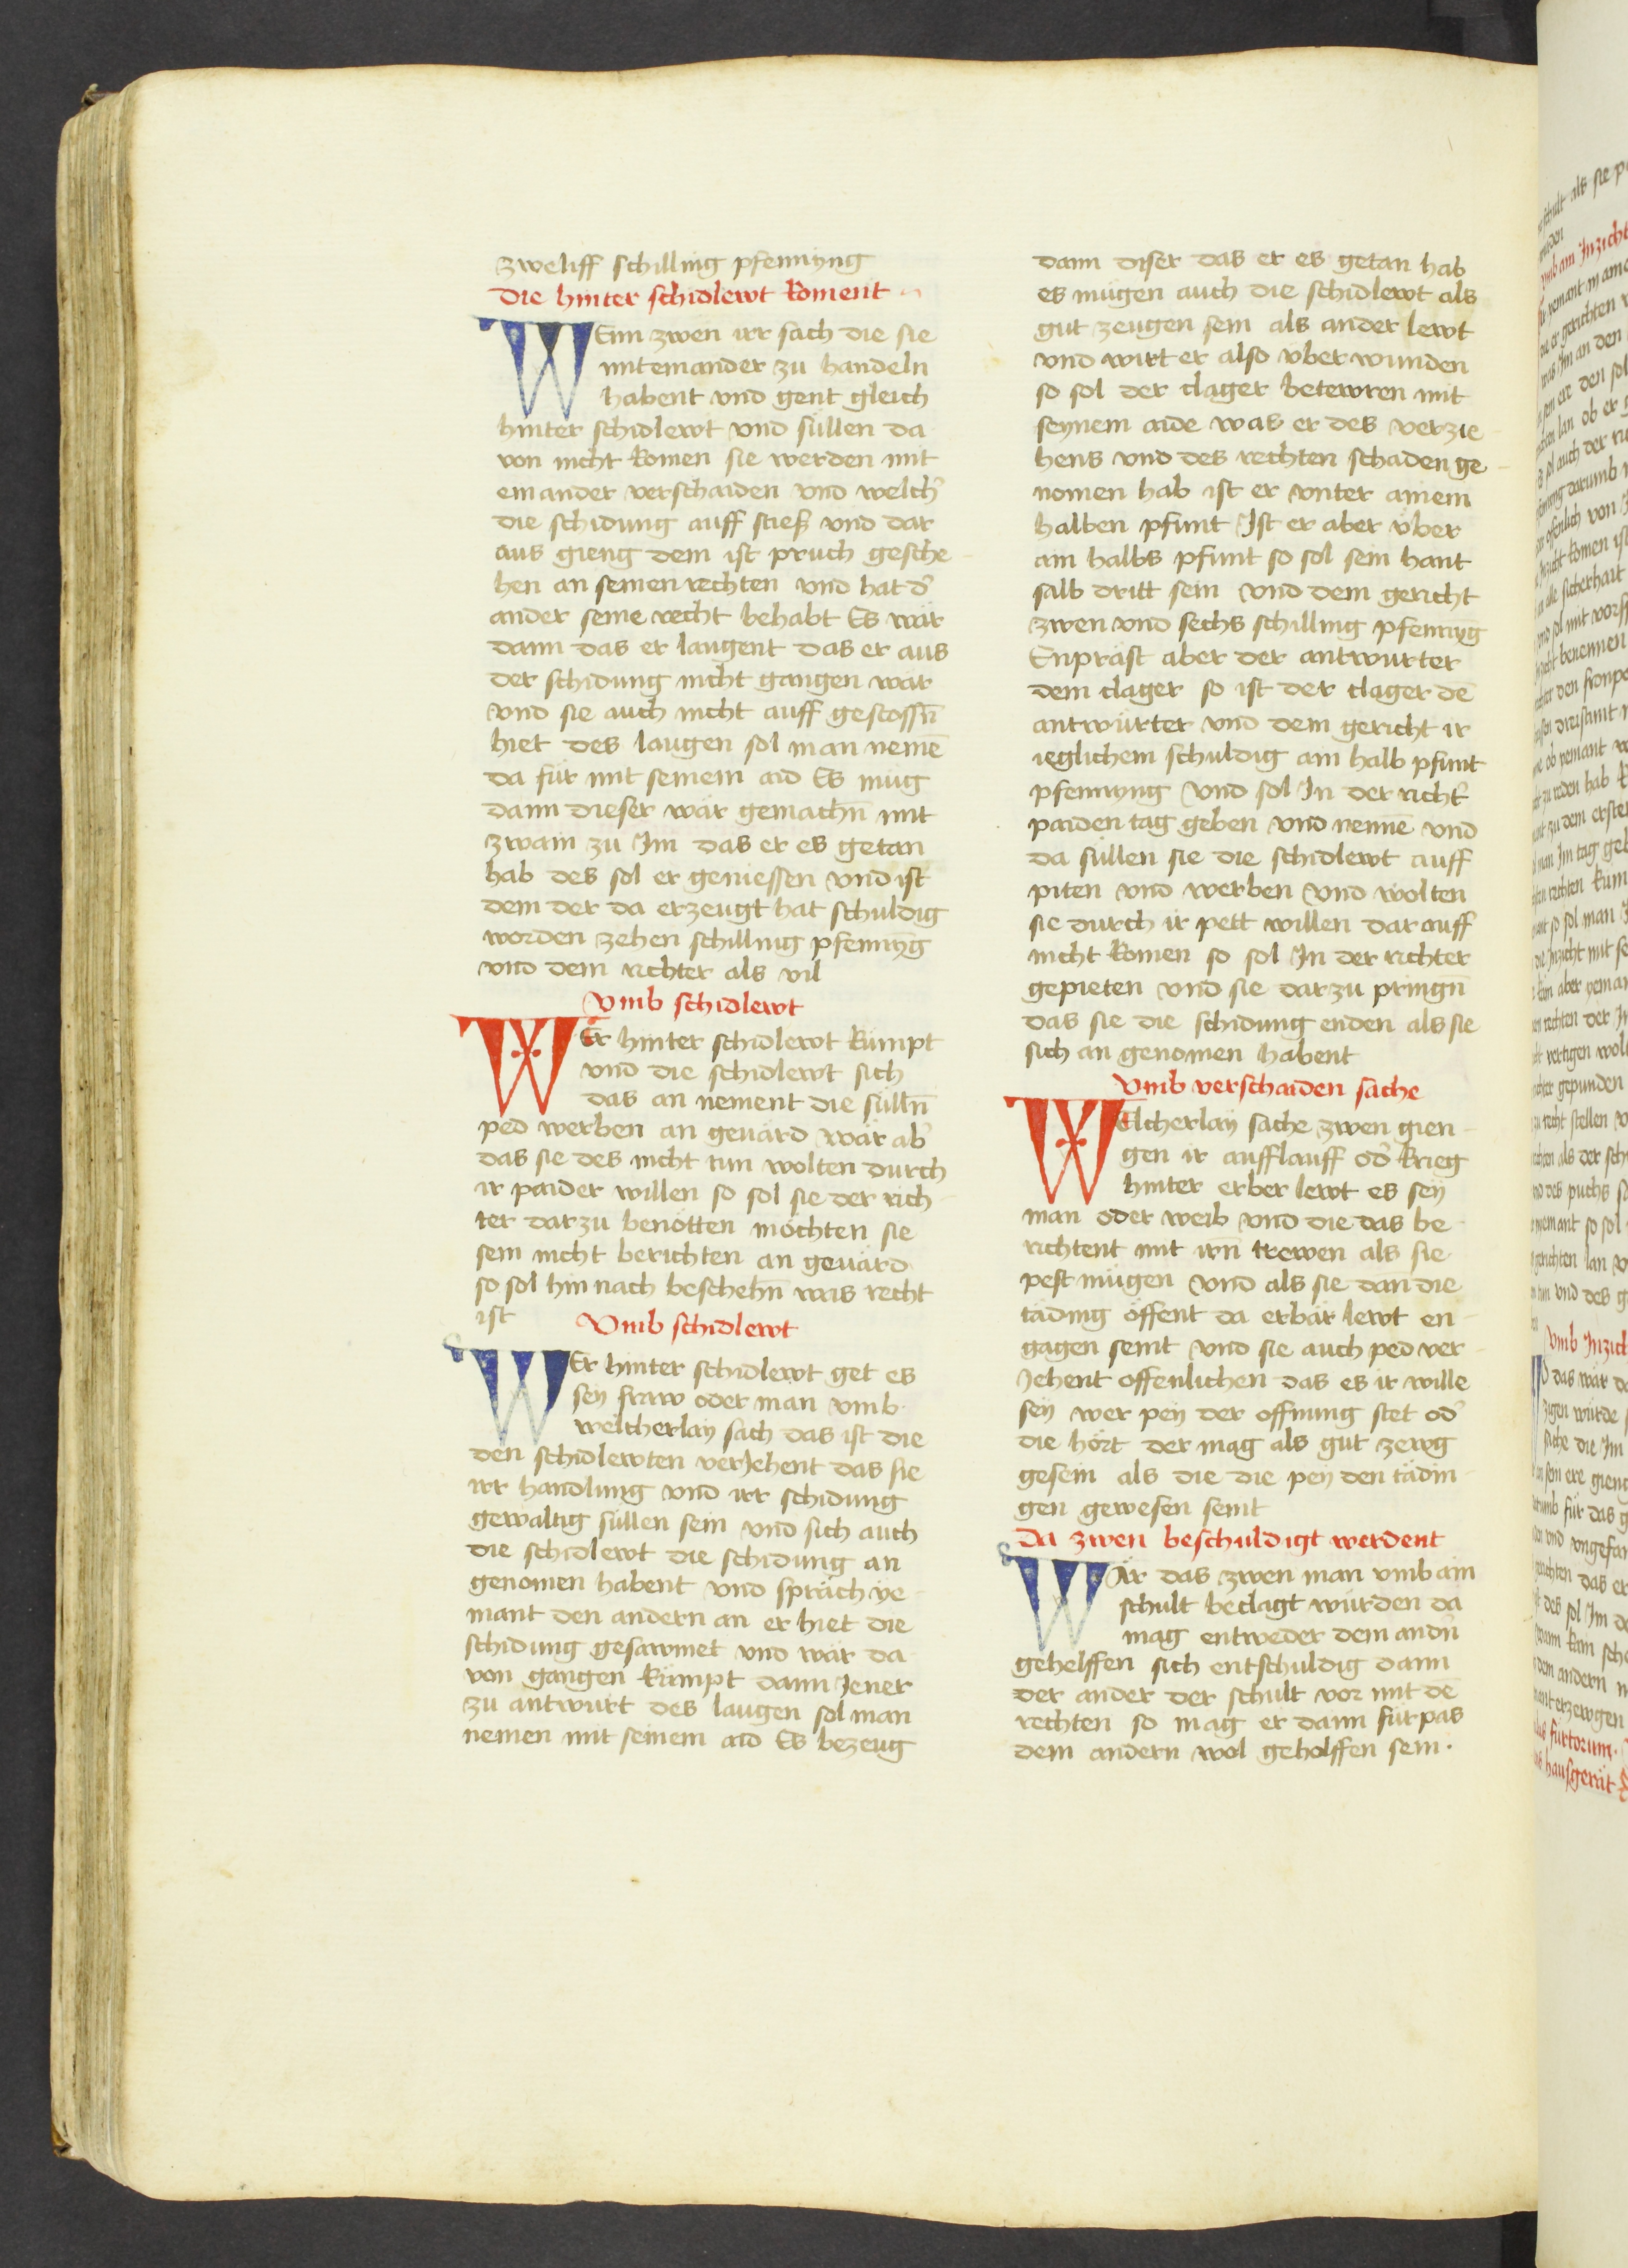 zweliff schilling pfennyng
Die hinter schidlewt koment
WEnn zwen irr sach die sie
mit einander zu handeln
habent vnd gent gleich
hinter schidlewt vnd süllen da
von nicht komen sie werden mit
einander verschaiden vnd welch̉
die schidung auff sties vnd dar
aus gieng dem ist pruch gesche-
hen an seinen rechten vnd hat d̉
ander seine recht behabt Es wär
dann das er laugent das er aus
der schidung nicht gangen wär
vnd sie auch nicht auff gestossn̄
hiet des laugen sol man nemē
da für mit seinem aid Es müg
dann dieser war gemachn̄ mit
zwain zu Im das er es getan
hab des sol er geniessen vnd ist
dem der da erzeugt hat schuldig
worden zehen schilling pfennyḡ
vnd dem richter als vil
Vmb schidlewt
WEr hinter schidlewt kümpt
vnd die schidlewt sich
das an nement die sülln̄
ped werben an geuärd wär ab̉
das sie des nicht tun wolten durch
ir paider willen so sol sie der rich-
ter darzu benötten möchten sie
sein nicht berichten an geuärd
so sol hin nach beschehn̄ was recht
ist
Vmb schidlewt
WEr hinter schidlewt get es
sey fraw oder man vmb
welcherlay sach das ist die
den schidlewten verJehent das sie
irr handlung vnd irr schidung
gewaltig süllen sein vnd sich auch
die schidlewt die schidung an
genomen habent vnd spräch ye-
mant den andern an er hiet die
schidung gesawmet vnd wär da
von gangen kümpt dann Jener
zu antwurt des laugen sol man
nemen mit seinem aid Es bezeug
dann diser das er es getan hab
es mügen auch die schidlewt als
gut zeugen sein als ander lewt
vnd wirt er also vber wunden
so sol der clager betewren mit
seynem aide was er des verzie-
hens vnd des rechten schaden ge-
nomen hab ist er vnter ainem
halben pfunt Ist er aber vber
ain halbs pfunt so sol sein hant
salb dritt sein vnd dem gericht
zwen vnd sechs schilling pfennyḡ
Enpräst aber der antwurter
dem clager so ist der clager dē
antwürter vnd dem gericht ir
ieglichem schuldig ain halb pfunt
pfennyng vnd sol In der richt̉
paiden tag geben vnd nennē vnd
da süllen sie die schidlewt auff
piten vnd werben vnd wolten
sie durch ir pett willen dar auff
nicht komen so sol In der richter
gepieten vnd sie darzu pringn̄
das sie die schidung enden als sie
sich an genomen habent
Vmb verschaiden sache
WElcherlay sache zwen gien-
gen ir aufflauff od̉ krieg
hinter erber lewt es sey
man oder weib vnd die das be-
richtent mit irn̄ trewen als sie
pest mügen vnd als sie dan die
täding öffent da erbär lewt en-
gagen seint vnd sie auch ped ver-
Jehent offenlichen das es ir wille
sey wer pey der offnung stet od̉
die hört der mag als gut zewg
gesein als die die pey den tädin-
gen gewesen seint
Da zwen beschuldigt werdent
WÄr das zwen man vmb ain
schult beclagt würden da
mag entweder dem andn̉
gehelffen sich entschuldig dann
der ander der schult vor mit dē
rechten so mag er dann fürpas
dem andern wol geholffen sein.